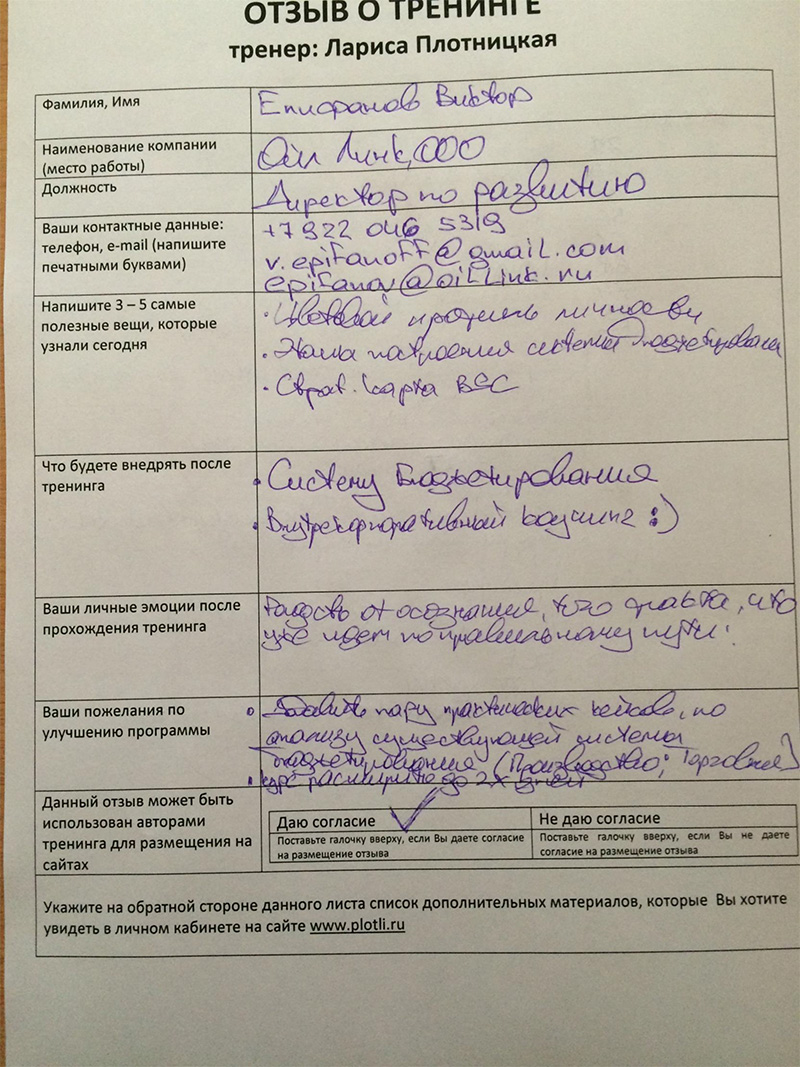 ОТЗЫВ О ТРЕНИНГЕ
тренер: Лариса Плотницкая
Фамилия, Имя
Епифанов Виктор
Наименование компании
(место работы)
Ойл Линк, ООО
Должность
Директор по развитию
Ваши контактные данные:
телефон, e-mail (напишите
печатными буквами)
+7 922 046 5319
v.epifanoff@gmail.com
epifanov@oillink.ru
Напишите 3 – 5 самые
полезные вещи, которые
узнали сегодня
· Цветовой профиль личности
· Этапы построения системы бюджетирования
· Страт. карта BSC
Что будете внедрять после
тренинга
· Систему Бюджетирования
· Внутрекорпоративный коучинг :)
Ваши личные эмоции после
прохождения тренинга
Радость от осознания, того факта, что
уже идем по правильному пути.
Ваши пожелания по
улучшению программы
Добавить пару практических кейсов, по
анализу существующей системы
бюджетирования (Производство; Торговля)
курс расширить до 2х дней
Данный отзыв может быть
использован авторами
тренинга для размещения на
сайтах
Даю согласие
Поставьте галочку вверху, если Вы даете согласие
на размещение отзыва
Не даю согласие
Поставьте галочку вверху, если Вы не даете
согласие на размещение отзыва
Укажите на обратной стороне данного листа список дополнительных материалов, которые Вы хотите
увидеть в личном кабинете на сайте www.plotli.ru